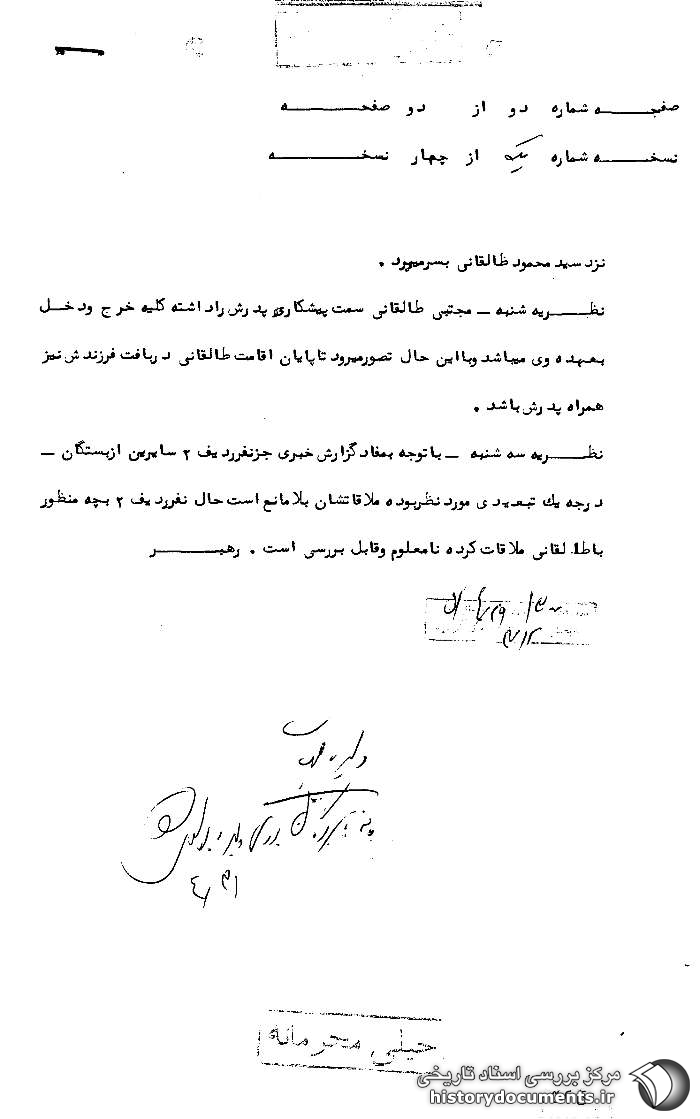 صفحه شماره دو از دو صفحه
نسخه شماره یک از چهار نسخه
نزد سید محمود طالقانی بسرمیبرد .
نظریه شنبه ــ مجتبی طالقانی سمت پیشکاری پدرش راداشته کلیه خرج ودخل
بعهده وی میباشد وبااین حال تصورمیرود تاپایان اقامت طالقانی دربافت فرزندش نیز
همراه پدرش باشد .
نظریه سه شنبه ــ باتوجه بمفادگزارش خبری جزنفرردیف ۲ سایرین ازبستگان ــ
درجه یك تبعیدی مورد نظربوده ملاقاتشان بلامانع است حال نفرردیف ۲ بچه منظور
باطالقانی ملاقات کرده نامعلوم وقابل بررسی است . رهبر
خیلی محرمانه
مرکز بررسی اسناد تاریخی
historydocuments.ir